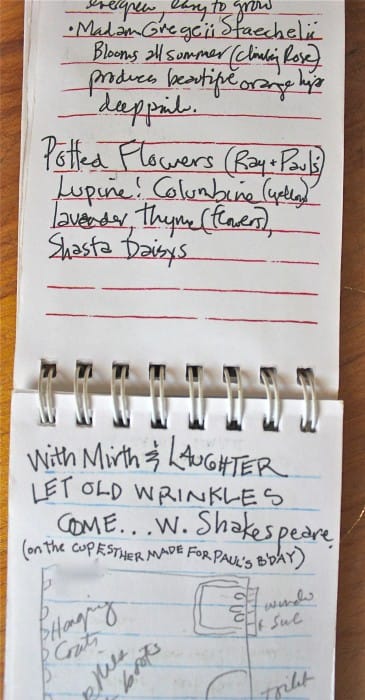 evergreen, easy to grow
• Madam Gregeii Staechelii
Blooms all summer (climbing Rose)
produces beautiful orange hips
deep pink.
Potted Flowers (Ray + Paul's)
Lupine! Columbine (yellow)
lavender, thyme (flowers),
Shasta Daisys
With Mirth & LAUGHTER
LET OLD WRINKLES
COME... W. Shakespeare
(on the CUP ESTHER MADE FOR PAUL'S B'DAY)
Hanging
Coats
boots
toilet